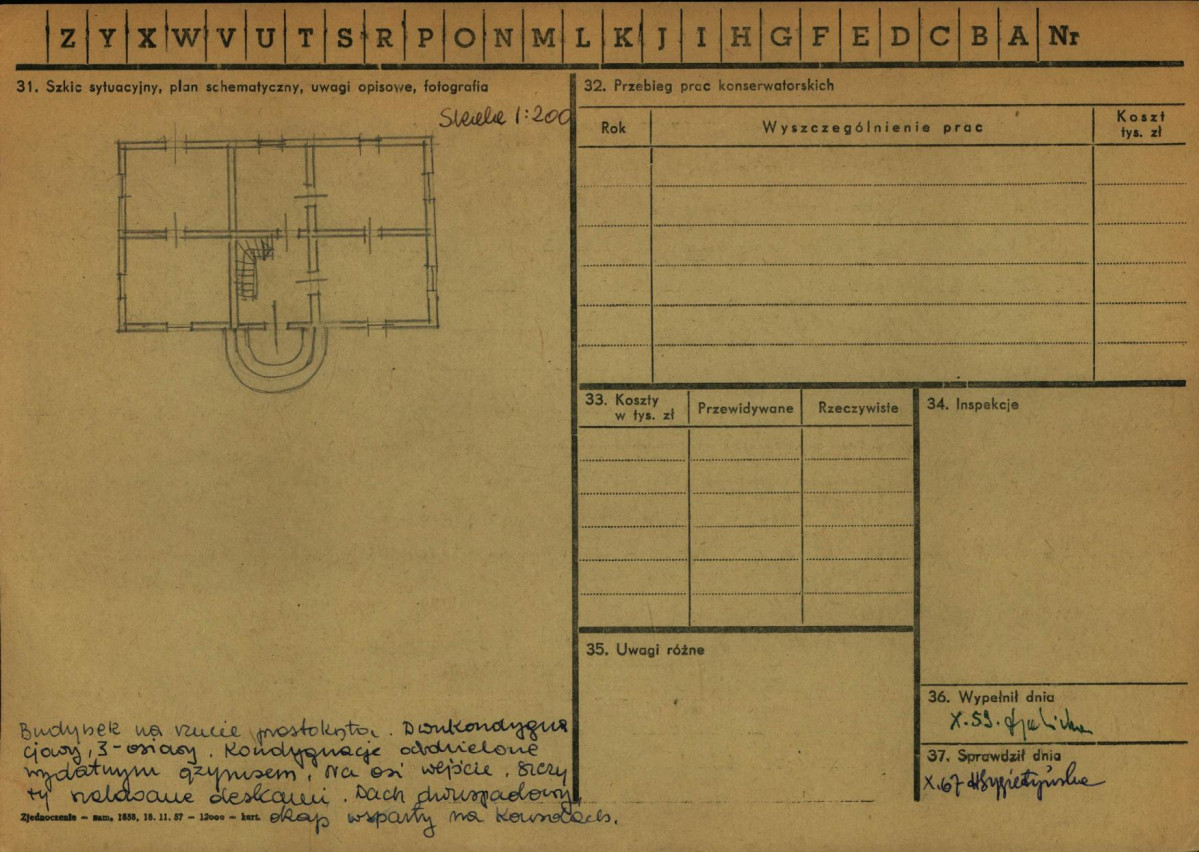 Z Y X W V U T S R P O N M L K J I H G F E D C B A Nr
31. Szkic sytuacyjny, plan schematyczny, uwagi opisowe, fotografia
Skala 1:200
Budynek na rzucie prostokąta. Dwukondygna
cjowy, 3-osiowy. Kondygnacje oddzielone
wydatnym gzymsem. Na osi wejście. Szczy
ty szalowane deskami. Dach dwuspadowy,
okap wsparty na konsolach.
Zjednoczenie – zam. 1858, 18. 11. 57 – 12000 – kart.
32. Przebieg prac konserwatorskich
Rok Wyszczególnienie prac Koszt
tys. zł
33. Koszty
w tys. zł Przewidywane Rzeczywiste
34. Inspekcje
35. Uwagi różne
36. Wypełnił dnia
X.59.
37. Sprawdził dnia
X.67